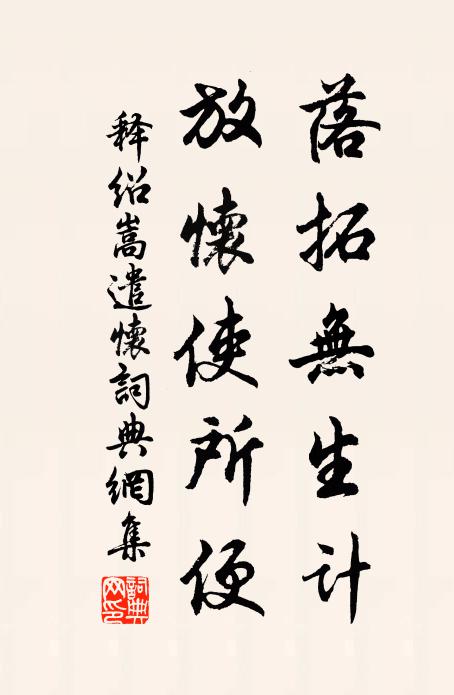 落拓無生計
放懷使所便
释绍嵩遣懷詞典網集
詞典網印